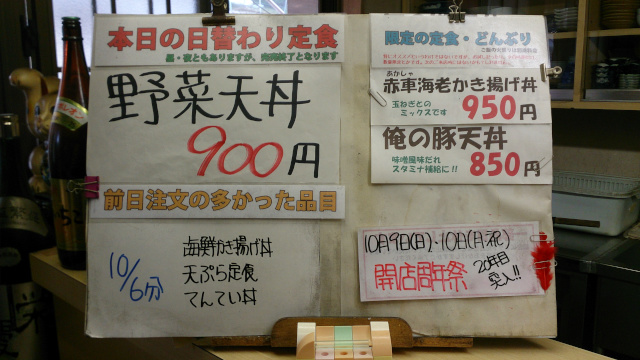 本日の日替わり定食
昼・夜ともありますが、完売終了となります
野菜天丼
900円
前日注文の多かった品目
10/6分
海鮮かき揚げ丼
天ぷら定食
てんてい丼
限定の定食・どんぶり
ぶかしゃ
赤車海老かき揚げ丼
玉ねぎとの
ミックスです
950円
俺の豚天丼
味噌風味だれ
スタミナ補給に!!
850円
10月9日(日)・10日(月・祝)
開店周年祭
20年目
突入!!